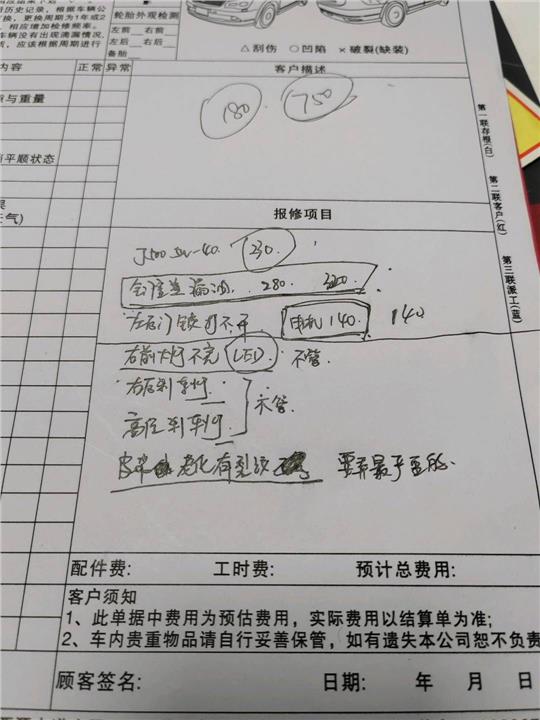 历史记录,根据车辆公
换,更换周期为1年或2
相应增加检修频率。
车辆没有出现滴漏情况,
应该根据周期进行
轮胎外观检测
左前 右前
左后 右后
备胎
△刮伤 ○凹陷 ×破裂(缺装)
内容 正常 异常 客户描述
180 750
与重量
平顺状态
天气)
第一联存根(白)
第二联客户(红)
第三联派工(蓝)
报修项目
5W-40 230
漏油 280
左右门锁打不开 电机140 140
右前大灯不亮 LED 不管
右后刹车灯
高位刹车灯 不管
老化有裂纹
配件费: 工时费: 预计总费用:
客户须知
1、此单据中费用为预估费用,实际费用以结算单为准;
2、车内贵重物品请自行妥善保管,如有遗失本公司恕不负责
顾客签名: 日期: 年 月 日